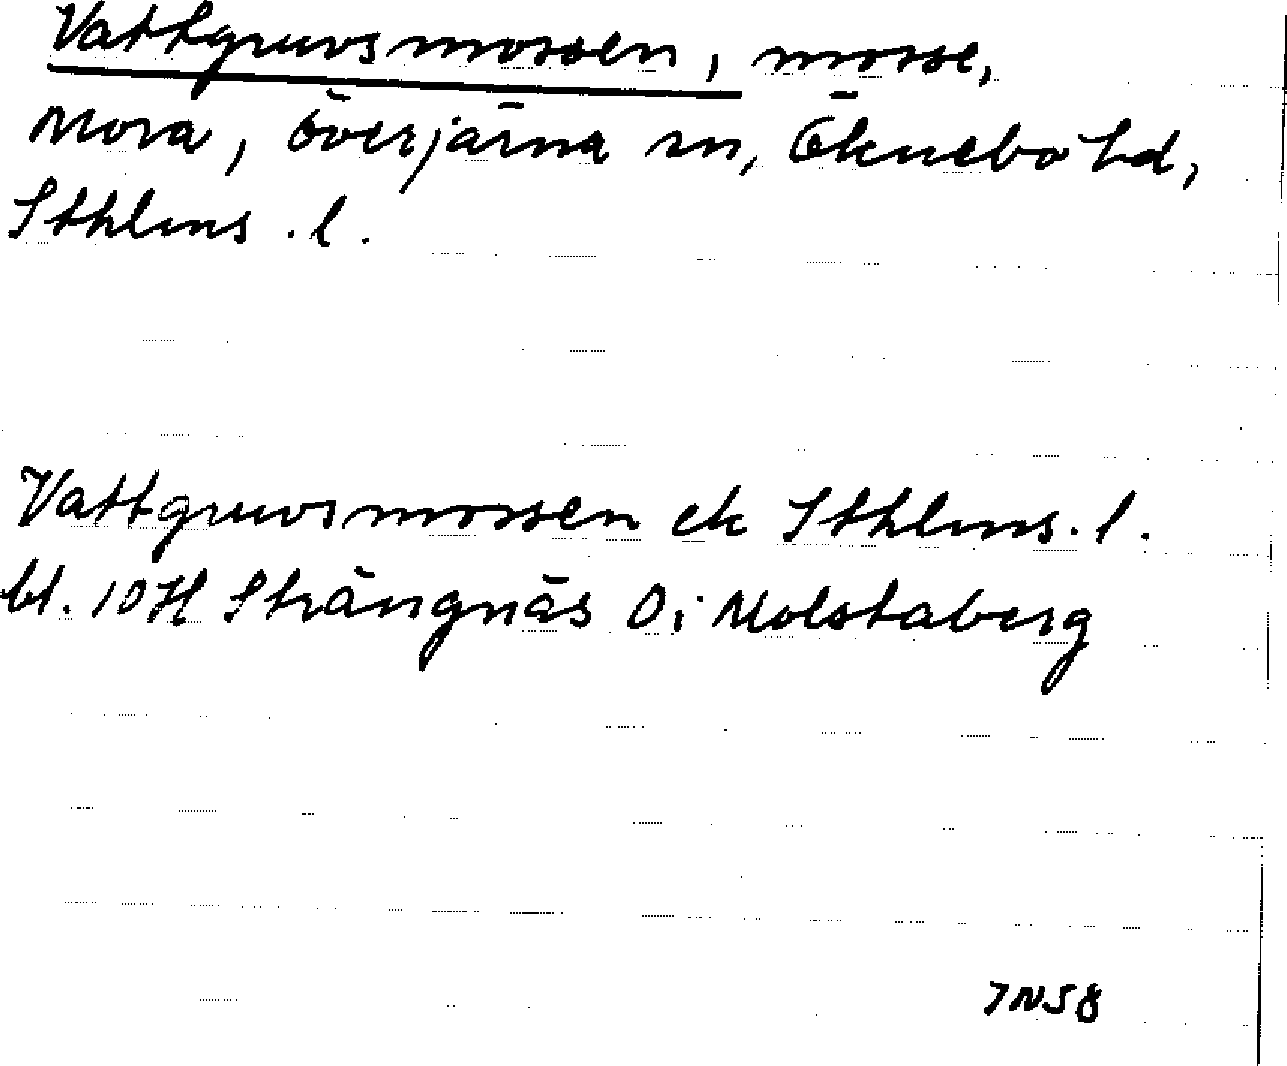 Vattgruvsmossen, mosse,
Mora, Överjärna sn, Öknebo hd,
Sthlms. l.
Vattgruvsmossen ek Sthlms. l.
bl. 10H Strängnäs 0i Molstaberg
7N58